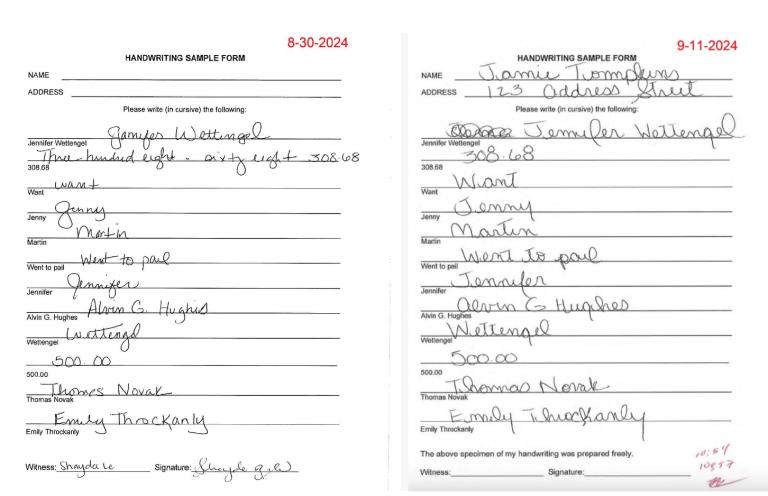 8-30-2024
HANDWRITING SAMPLE FORM
NAME
ADDRESS
Please write (in cursive) the following:
Jennifer Wettengel
Jennifer Wettengel
Three hundred eight - sixty eight 308.68
308.68
want
Want
Jenny
Jenny
Martin
Martin
Went to pail
Went to pail
Jennifer
Jennifer
Alvin G. Hughes
Alvin G. Hughes
Wettengel
Wettengel
500.00
500.00
Thomes Novak
Thomas Novak
Emily Throckanly
Emily Throckanly
Witness: Shayda Le Signature:
9-11-2024
HANDWRITING SAMPLE FORM
NAME Jamie Tompkins
ADDRESS 123 Address Street
Please write (in cursive) the following:
Jennifer Wettengel
Jennifer Wettengel
308.68
308.68
Want
Want
Jenny
Jenny
Martin
Martin
Went to pail
Went to pail
Jennifer
Jennifer
Alvin G Hughes
Alvin G. Hughes
Wettengel
Wettengel
500.00
500.00
Thomas Novak
Thomas Novak
Emily Throckanly
Emily Throckanly
The above specimen of my handwriting was prepared freely.
10:54
Witness: Signature: